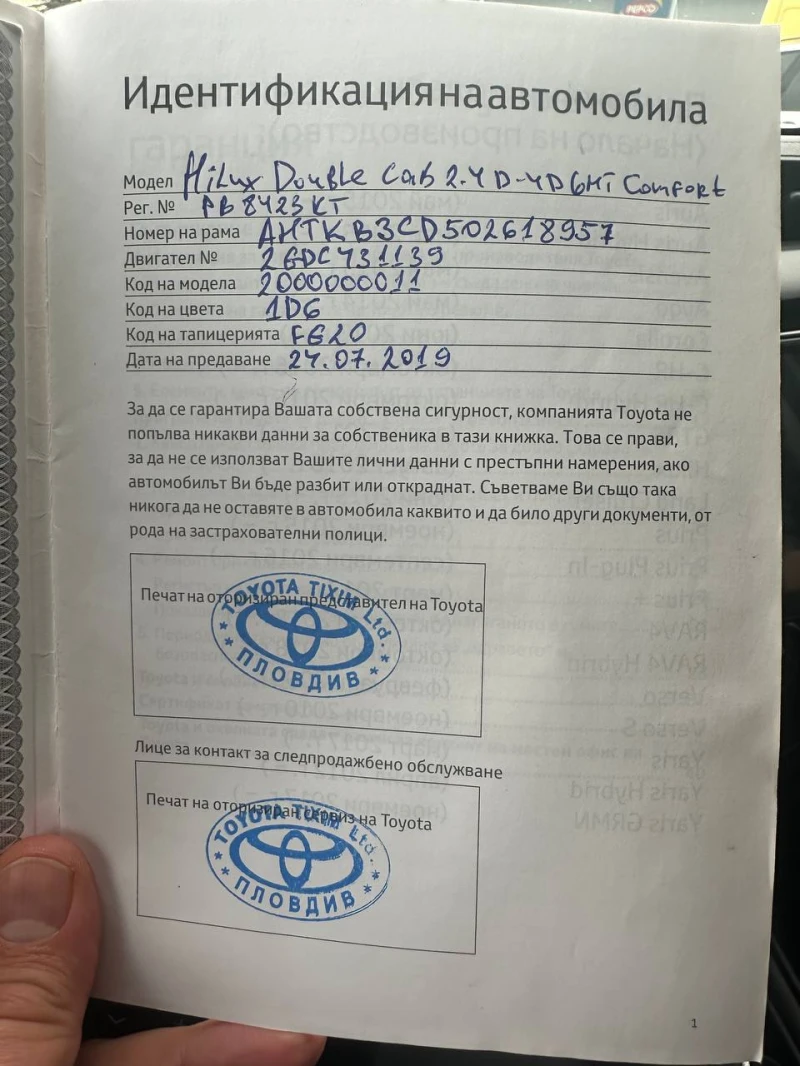 PEPCO
Идентификация на автомобила
Модел HiLux Double Cab 2.4 D-4D 6MT Comfort
Рег. № PB 8423 KT
Номер на рама AHTKB3CD502618957
Двигател № 2GDC431139
Код на модела 2000000011
Код на цвета 1D6
Код на тапицерията FG20
Дата на предаване 24.07.2019
За да се гарантира Вашата собствена сигурност, компанията Toyota не
попълва никакви данни за собственика в тази книжка. Това се прави,
за да не се използват Вашите лични данни с престъпни намерения, ако
автомобилът Ви бъде разбит или откраднат. Съветваме Ви също така
никога да не оставяте в автомобила каквито и да било други документи, от
рода на застрахователни полици.
Печат на оторизиран представител на Toyota
TOYOTA TIXIM Ltd.
ПЛОВДИВ
Лице за контакт за следпродажбено обслужване
Печат на оторизиран сервиз на Toyota
TOYOTA TIXIM Ltd.
ПЛОВДИВ
1